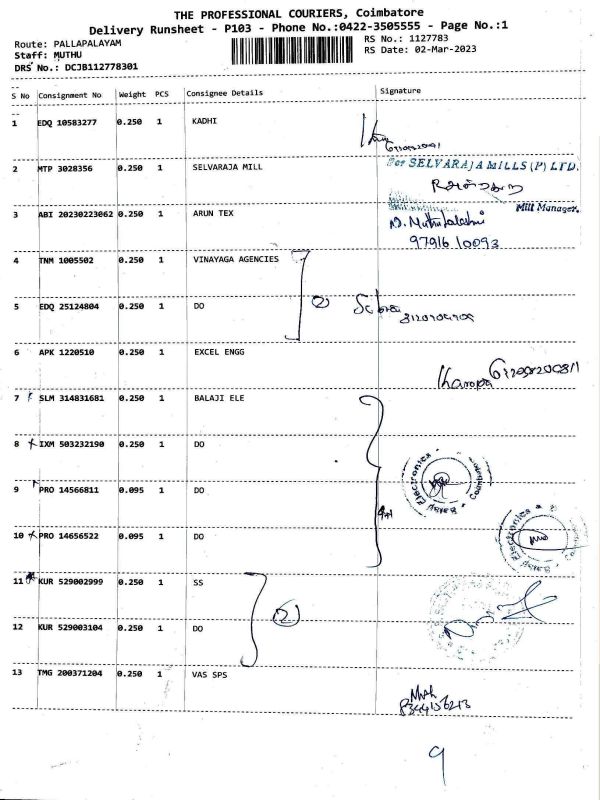 THE PROFESSIONAL COURIERS, Coimbatore
Delivery Runsheet - P103 - Phone No.:0422-3505555 - Page No.:1
Route: PALLAPALAYAM
RS No.: 1127783
Staff: MUTHU
RS Date: 02-Mar-2023
DRS No.: DCJB112778301
S No Consignment No Weight PCS Consignee Details Signature
1 EDQ 10583277 0.250 1 KADHI
2 MTP 3028356 0.250 1 SELVARAJA MILL
For SELVARAJA MILLS (P) LTD.
Mill Manager.
3 ABI 20230223062 0.250 1 ARUN TEX
N. Muthulakshmi
97916 10093
4 TNM 1005502 0.250 1 VINAYAGA AGENCIES
5 EDQ 25124804 0.250 1 DO
2
6 APK 1220510 0.250 1 EXCEL ENGG
7 SLM 314831681 0.250 1 BALAJI ELE
8 IXM 503232190 0.250 1 DO
9 PRO 14566811 0.095 1 DO
10 PRO 14656522 0.095 1 DO
11 KUR 529002999 0.250 1 SS
12 KUR 529003104 0.250 1 DO
2
13 TMG 200371204 0.250 1 VAS SPS
9